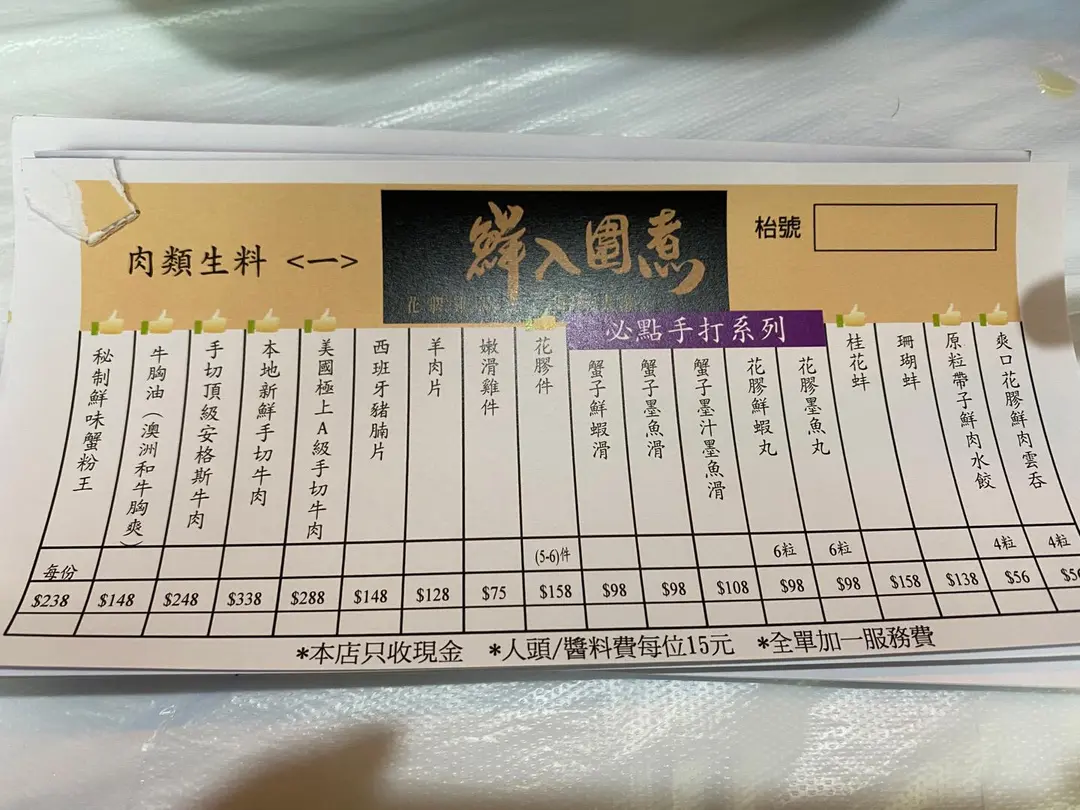 肉類生料 <一>
鮮入圍煮
枱號
必點手打系列
秘制鮮味蟹粉王
牛胸油（澳洲和牛胸爽）
手切頂級安格斯牛肉
本地新鮮手切牛肉
美國極上A級手切牛肉
西班牙豬腩片
羊肉片
嫩滑雞件
花膠件
蟹子鮮蝦滑
蟹子墨魚滑
蟹子墨汁墨魚滑
花膠鮮蝦丸
花膠墨魚丸
桂花蚌
珊瑚蚌
原粒帶子鮮肉水餃
爽口花膠鮮肉雲吞
每份 (5-6)件 6粒 6粒 4粒 4粒
$238 $148 $248 $338 $288 $148 $128 $75 $158 $98 $98 $108 $98 $98 $158 $138 $56
*本店只收現金 *人頭/醬料費每位15元 *全單加一服務費